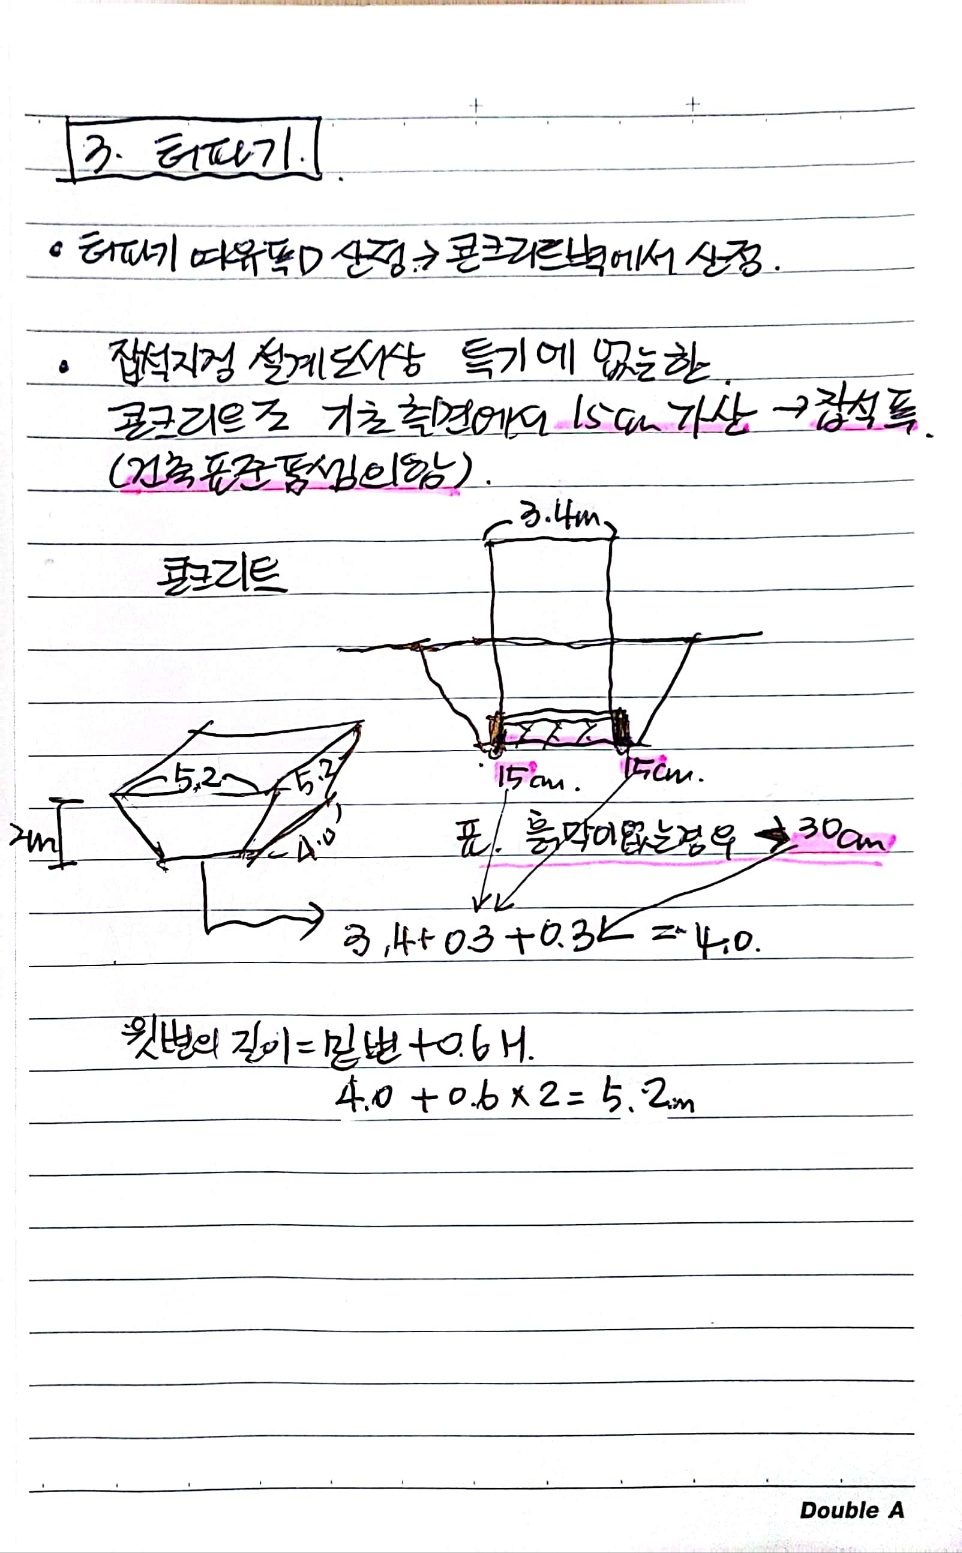 3. 터파기.
• 터파기 여유폭 D 산정 → 콘크리트벽에서 산정.
• 잡석지정 설계도서상 특기에 없는한
콘크리트조 기초측면에서 15cm 가산 → 잡석폭.
(건축표준품셈의함).
3.4m
콘크리트
5.2 5.2
15cm. 15cm.
2m 4.0
표. 흙막이없는경우 → 30cm
3.4+0.3+0.3 = 4.0.
윗변의 길이 = 밑변 + 0.6H.
4.0 + 0.6 × 2 = 5.2m
Double A